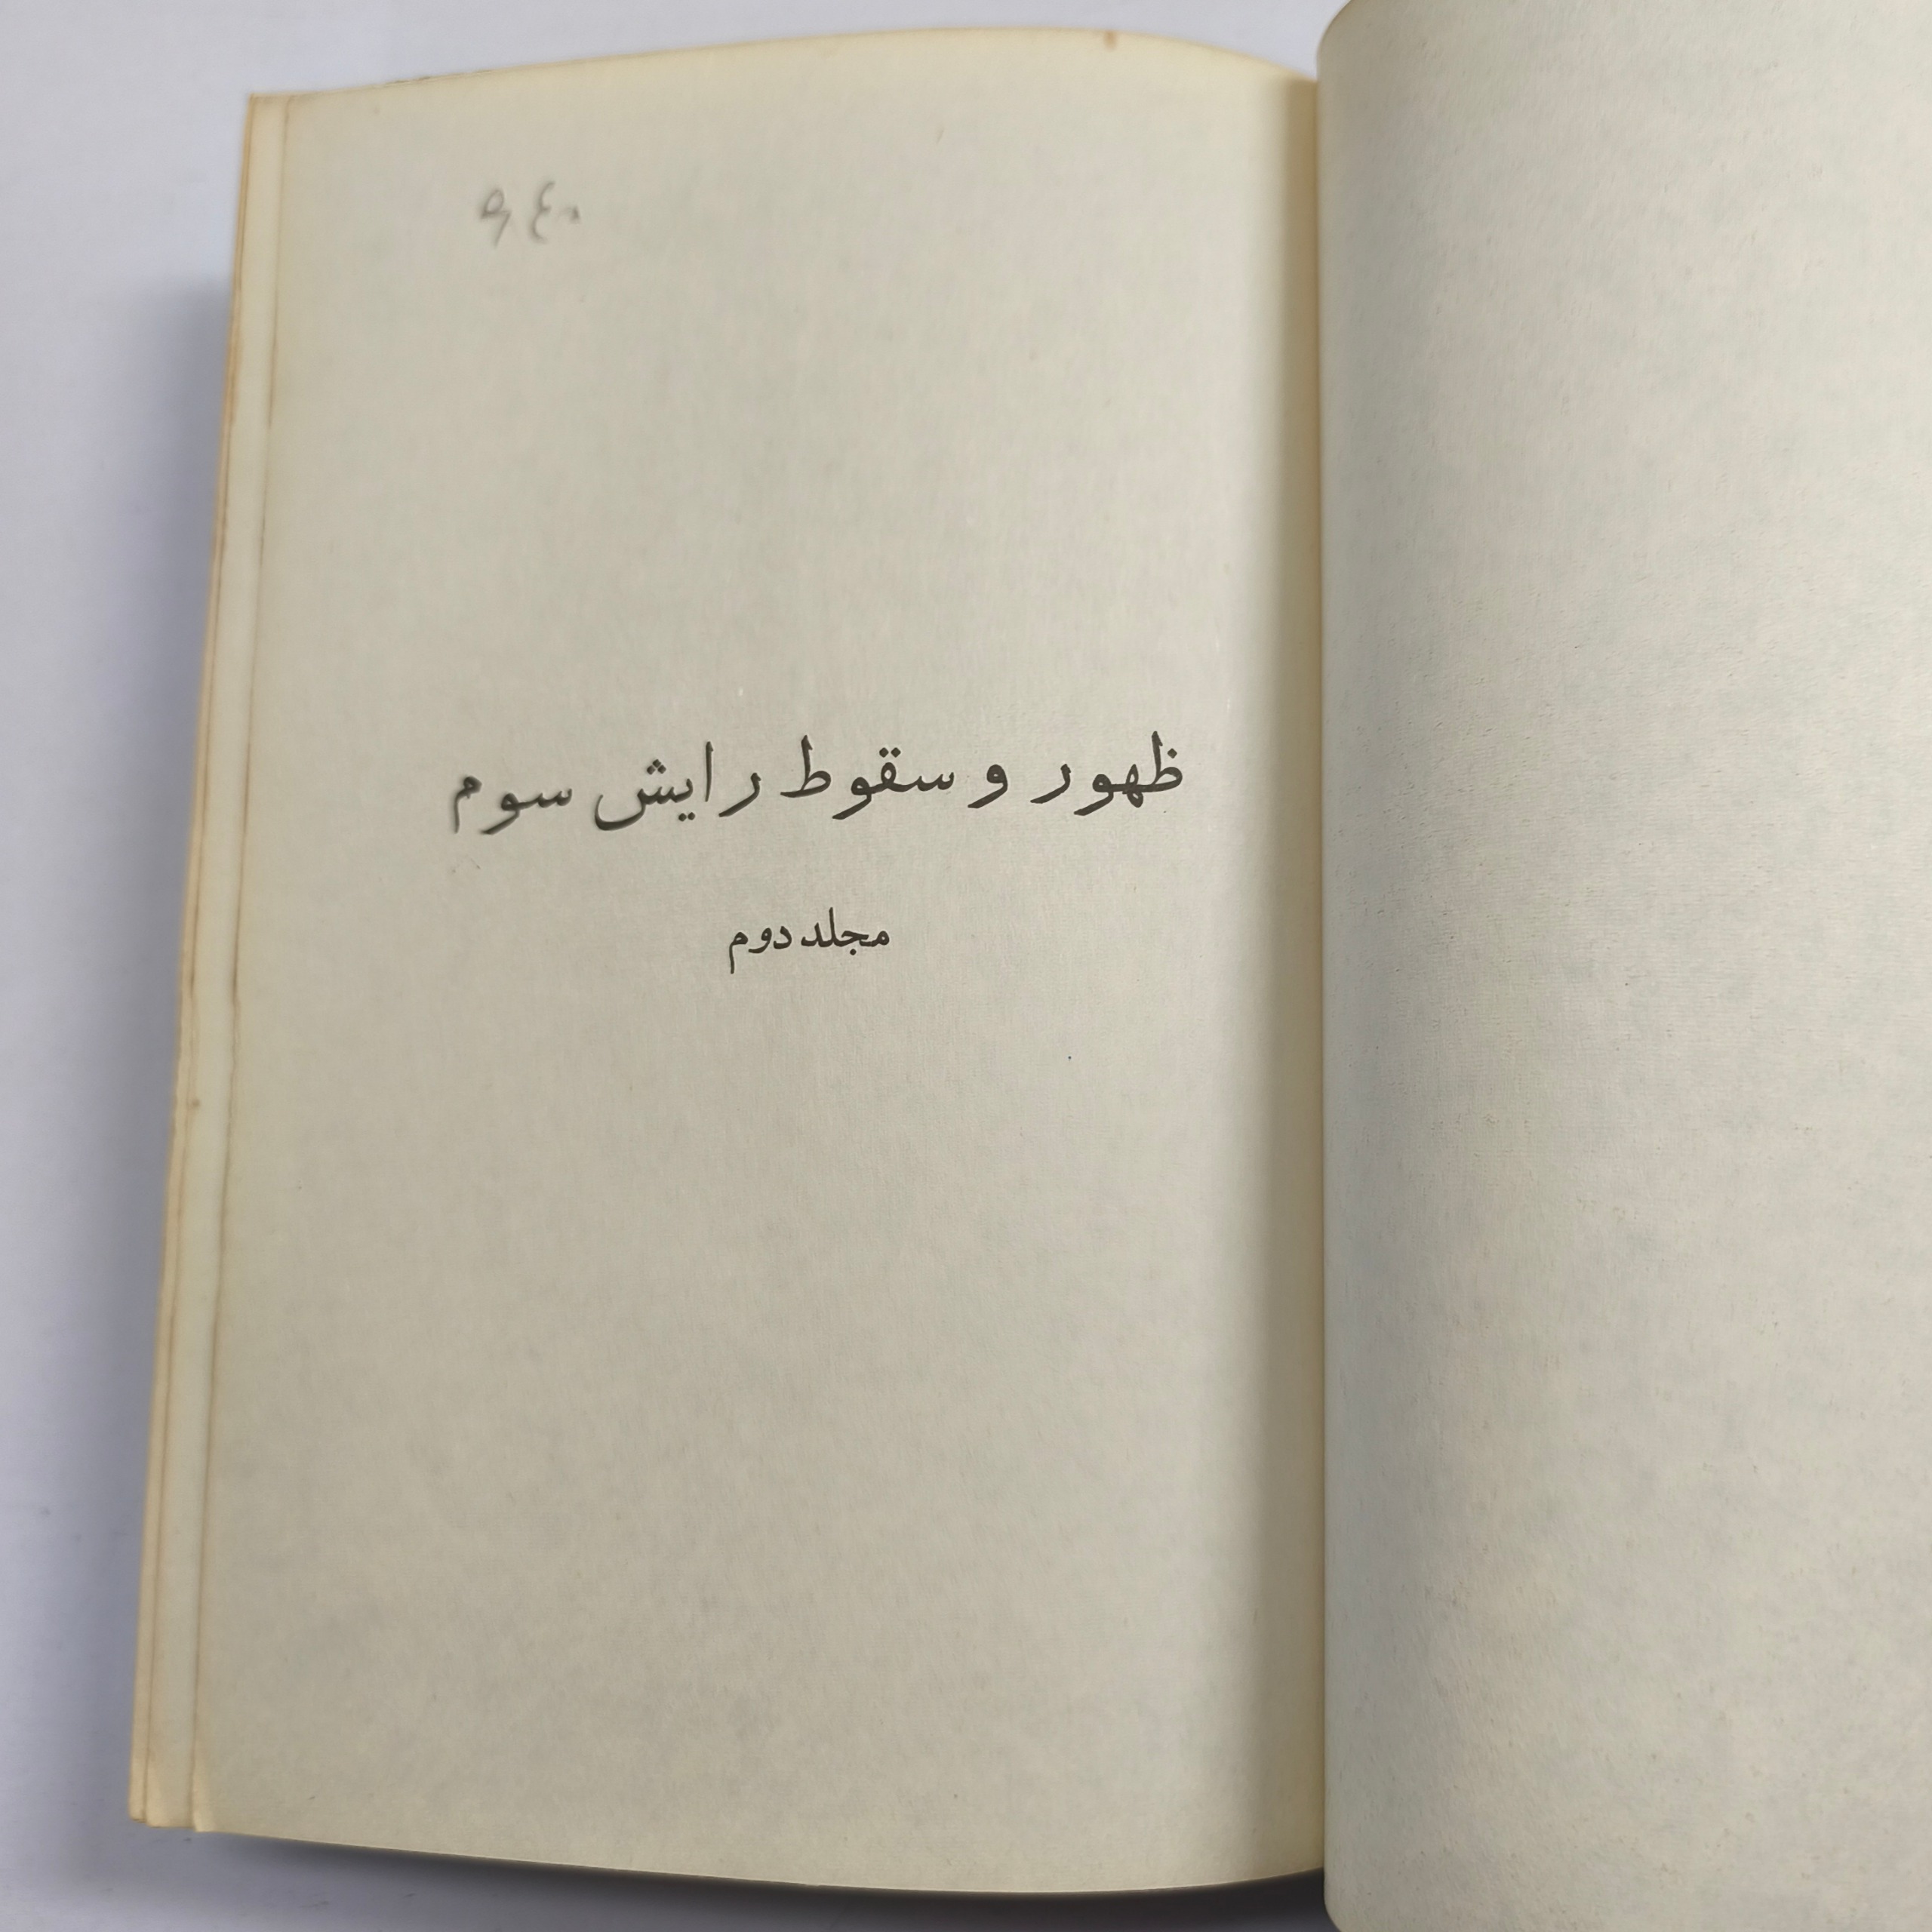 ۹٤۰
ظهور و سقوط رایش سوم
مجلد دوم